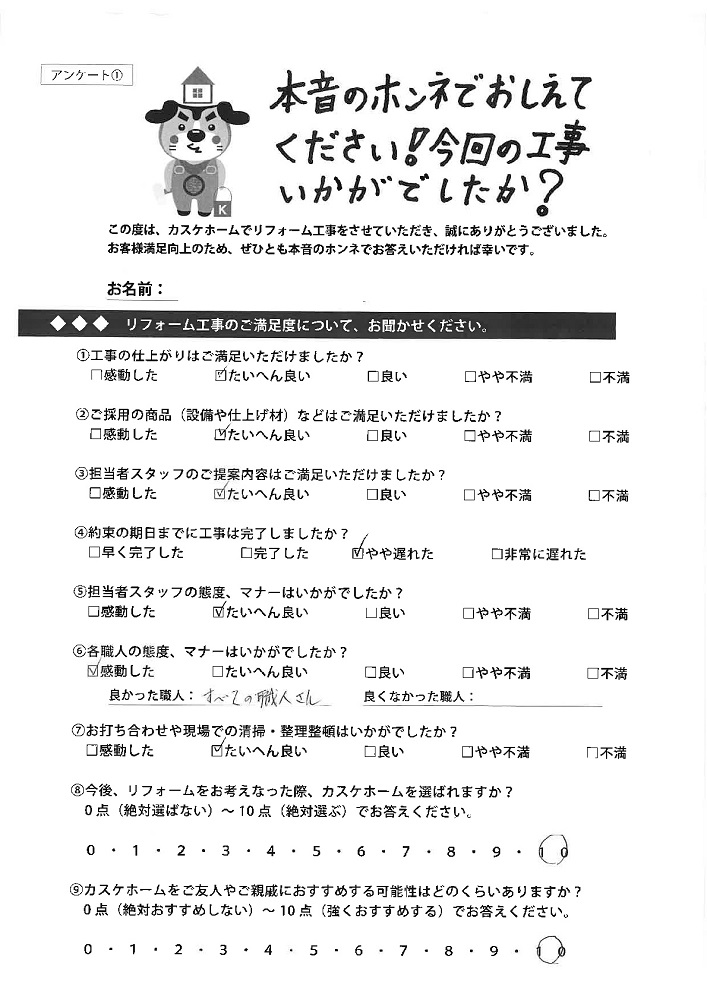 アンケート①
本音のホンネでおしえて
ください!今回の工事
いかがでしたか?
K
この度は、カスケホームでリフォーム工事をさせていただき、誠にありがとうございました。
お客様満足向上のため、ぜひとも本音のホンネでお答えいただければ幸いです。
お名前：
◆◆◆ リフォーム工事のご満足度について、お聞かせください。
①工事の仕上がりはご満足いただけましたか？
□感動した ☑たいへん良い □良い □やや不満 □不満
②ご採用の商品（設備や仕上げ材）などはご満足いただけましたか？
□感動した ☑たいへん良い □良い □やや不満 □不満
③担当者スタッフのご提案内容はご満足いただけましたか？
□感動した ☑たいへん良い □良い □やや不満 □不満
④約束の期日までに工事は完了しましたか？
□早く完了した □完了した ☑やや遅れた □非常に遅れた
⑤担当者スタッフの態度、マナーはいかがでしたか？
□感動した ☑たいへん良い □良い □やや不満 □不満
⑥各職人の態度、マナーはいかがでしたか？
☑感動した □たいへん良い □良い □やや不満 □不満
良かった職人：すべての職人さん 良くなかった職人：
⑦お打ち合わせや現場での清掃・整理整頓はいかがでしたか？
□感動した ☑たいへん良い □良い □やや不満 □不満
⑧今後、リフォームをお考えなった際、カスケホームを選ばれますか？
0点（絶対選ばない）～10点（絶対選ぶ）でお答えください。
0・1・2・3・4・5・6・7・8・9・10
⑨カスケホームをご友人やご親戚におすすめする可能性はどのくらいありますか？
0点（絶対おすすめしない）～10点（強くおすすめする）でお答えください。
0・1・2・3・4・5・6・7・8・9・10